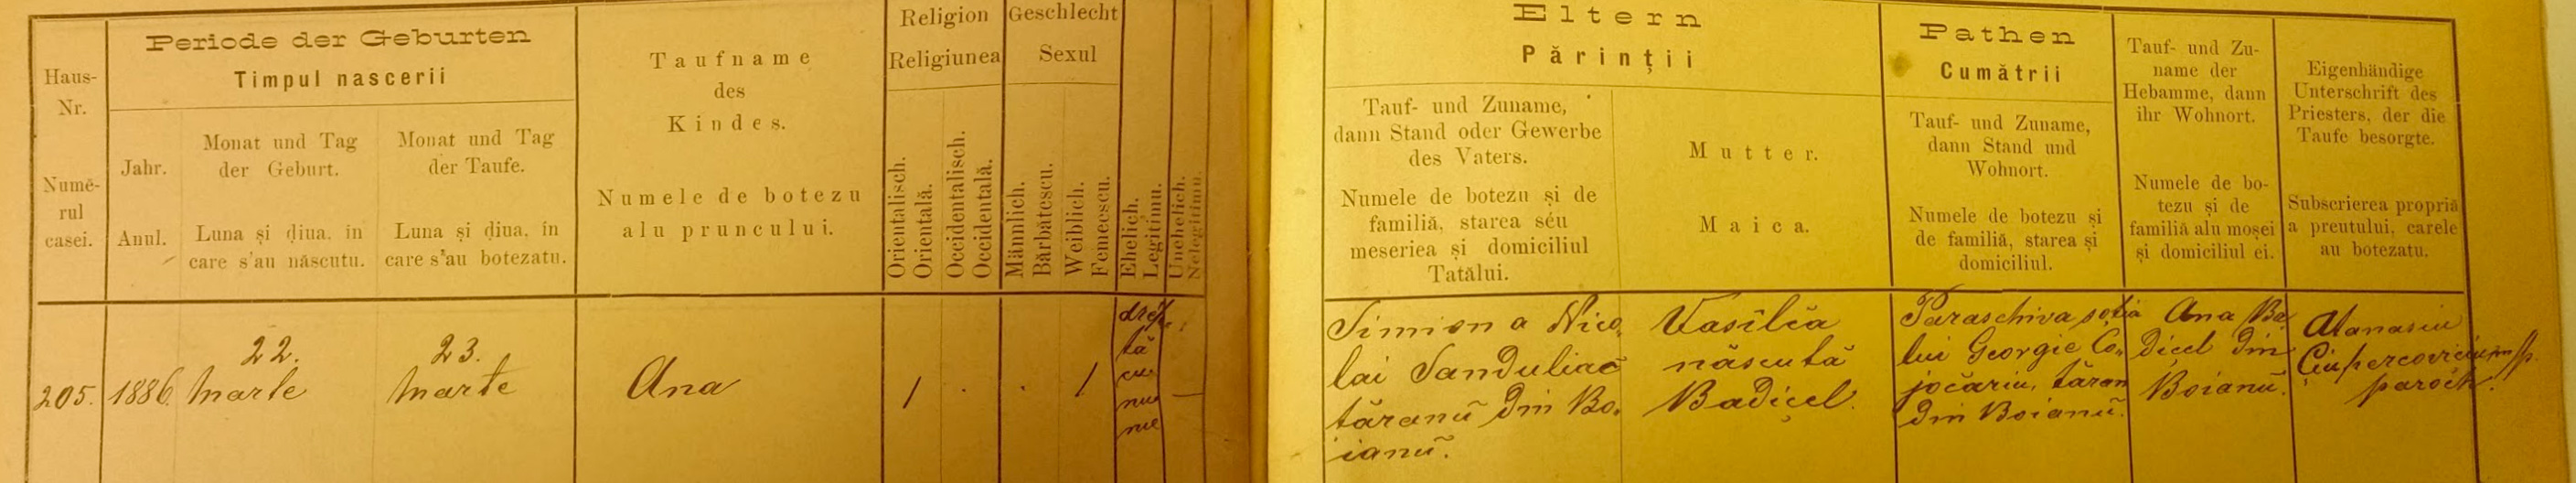 Haus-
Nr.
Numĕ-
rul
casei.
Periode der Geburten
Timpul nascerii
Jahr.
Anul.
Monat und Tag
der Geburt.
Luna și ḍiua, în
care s'au născutu.
Monat und Tag
der Taufe.
Luna și ḍiua, în
care s'au botezatu.
Taufname
des
Kindes.
Numele de botezu
alu pruncului.
Religion
Religiunea
Orientalisch.
Orientală.
Occidentalisch.
Occidentală.
Geschlecht
Sexul
Männlich.
Bărbătescu.
Weiblich.
Femeescu.
Ehelich.
Legitimu.
Unehelich.
Nelegitimu.
Eltern
Părinții
Tauf- und Zuname,
dann Stand oder Gewerbe
des Vaters.
Numele de botezu și de
familiă, starea séu
meseriea și domiciliul
Tatălui.
Mutter.
Maica.
Pathen
Cumătrii
Tauf- und Zuname,
dann Stand und
Wohnort.
Numele de botezu și
de familiă, starea și
domiciliul.
Tauf- und Zu-
name der
Hebamme, dann
ihr Wohnort.
Numele de bo-
tezu și de
familiă alu moșei
și domiciliul ei.
Eigenhändige
Unterschrift des
Priesters, der die
Taufe besorgte.
Subscrierea propriă
a preutului, carele
au botezatu.
205.
1886
22.
Marte
23.
Marte
Ana
/
.
.
/
tă
cu
nu
nie
—
Simion a Nico,
lai Sanduliac
tăranŭ din Bo,
ianŭ.
Vasilĭa
născută
Badicel.
Paraschiva soția
lui Georgie Co,
jocariu, tăran
din Boianŭ.
Ana Ba
dicel din
Boianŭ.
Atanasiu
Ciupercoviciu
paroch.